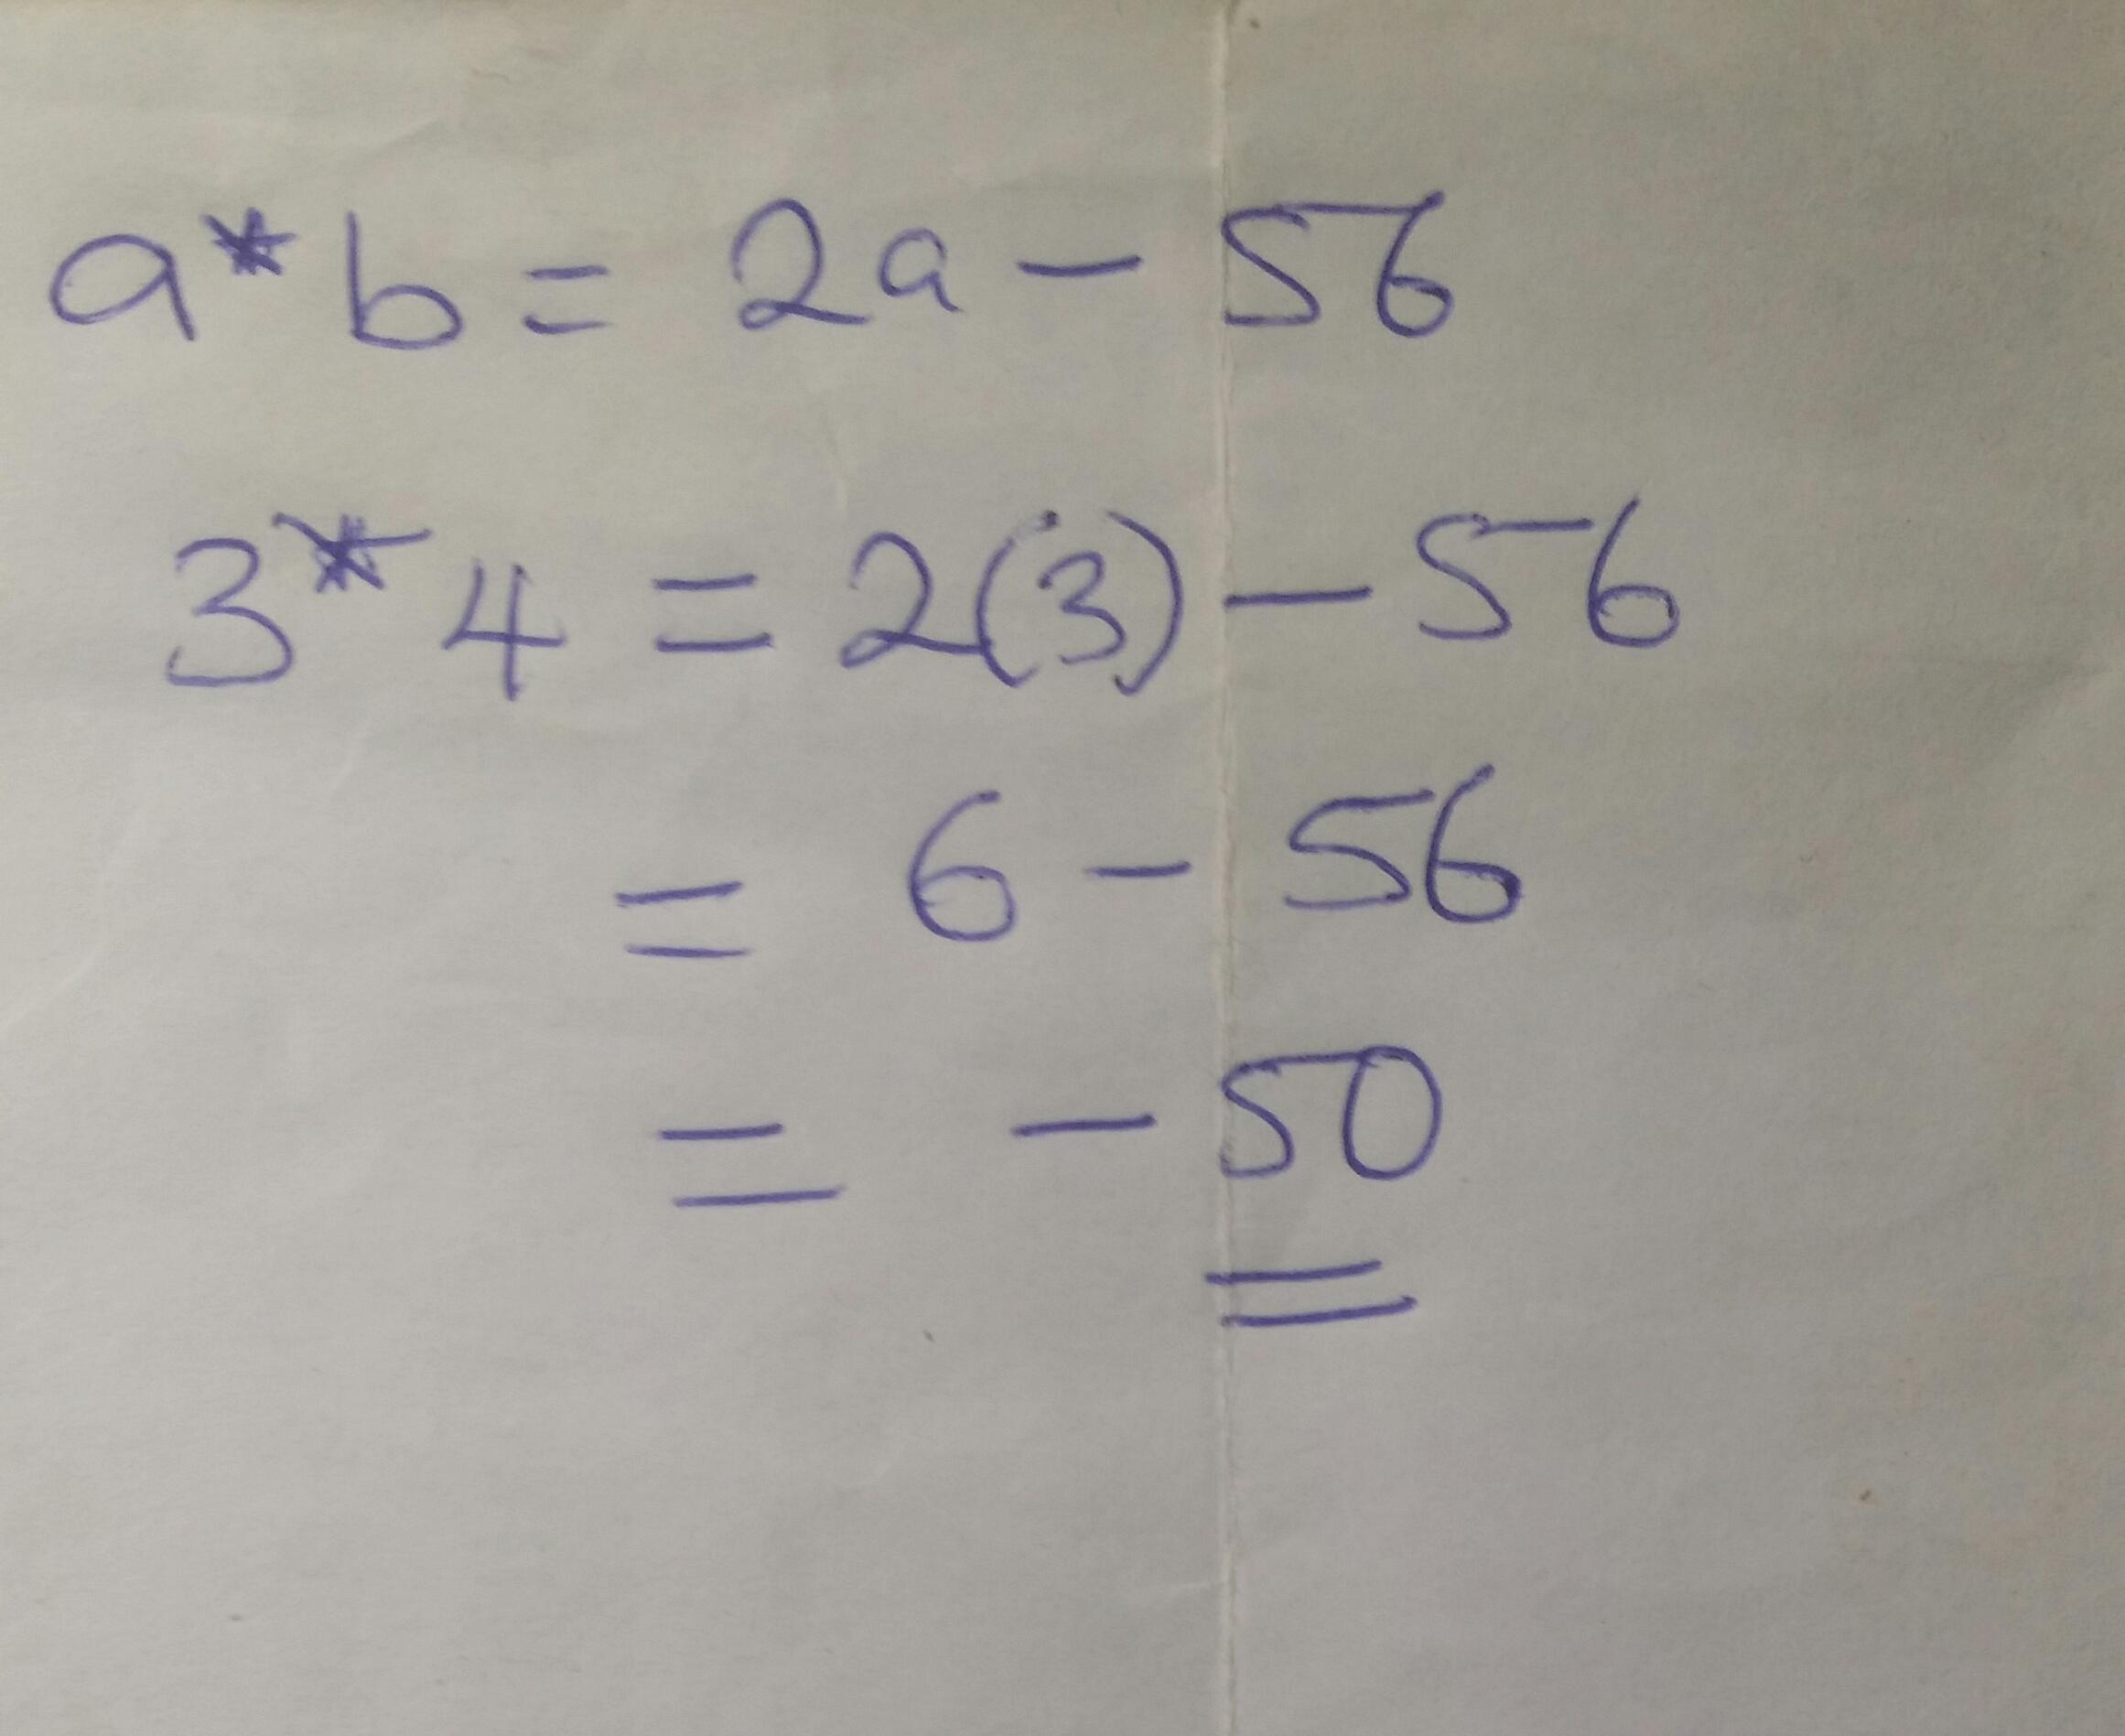 a*b = 2a - 56
3*4 = 2(3) - 56
= 6 - 56
= -50